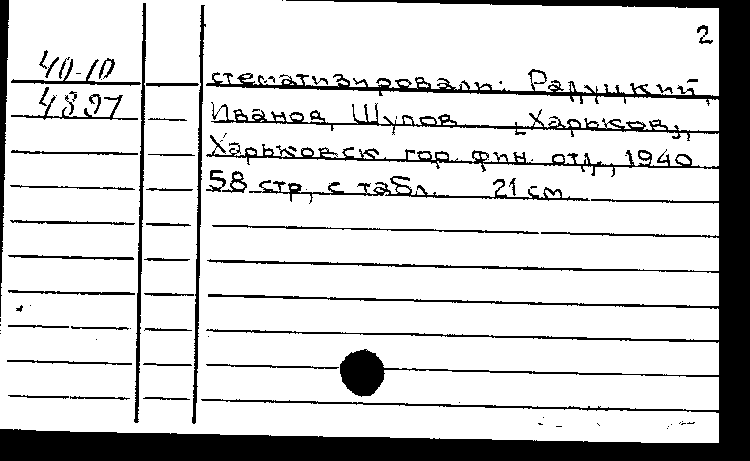 2
40-10
4897
стематизировали: Радуцкий,
Иванов, Шупов [Харьков],
Харьковск. гор. фин. отд., 1940
58 стр, с табл. 21 см.